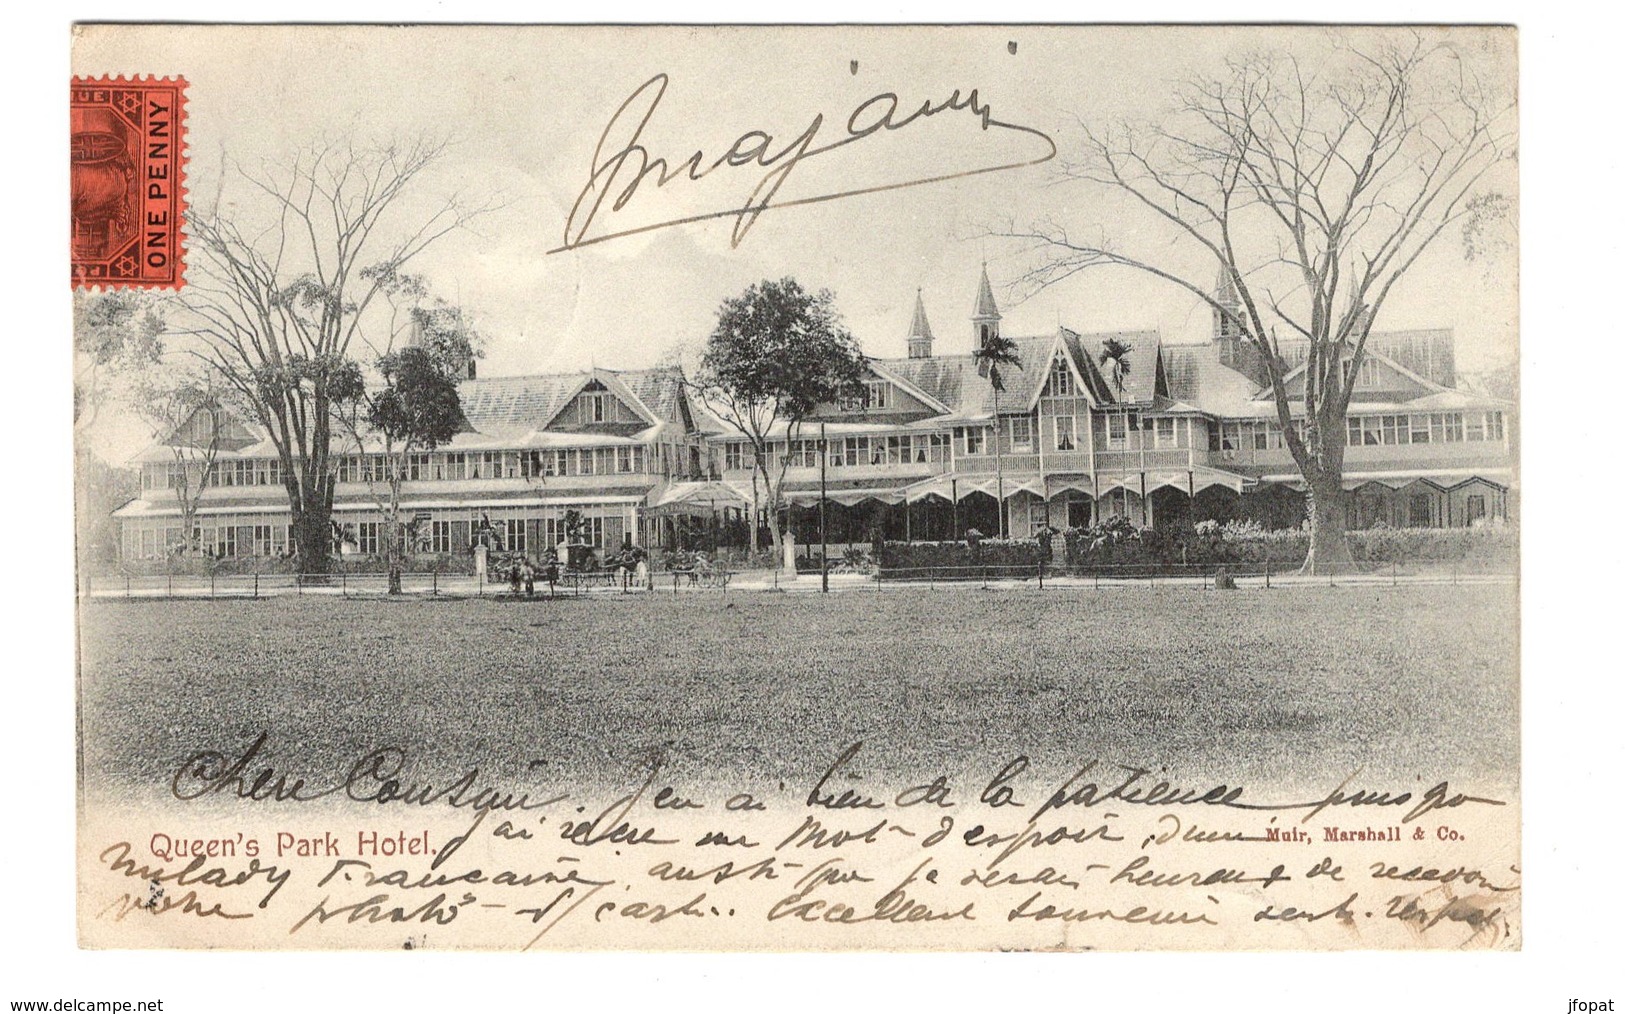 UE
ONE PENNY
PO
Chère Cousine. J'en ai bien de la patience puisque
Queen's Park Hotel.
j'ai reçu un mot d'espoir, d'une
Muir, Marshall & Co.
milady Française, aussi que je serais heureux de recevoir
votre photo-d/carte.. Excellent souvenir
www.delcampe.net
jfopat